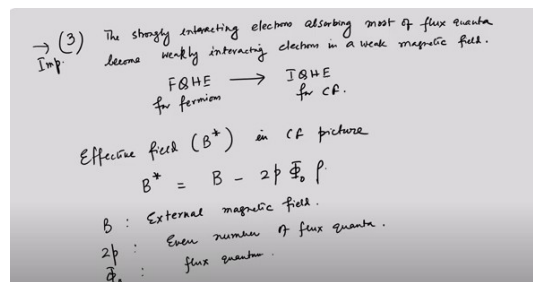 → (3) The strongly interacting electrons absorbing most of flux quanta
Imp. become weakly interacting electrons in a weak magnetic field.
FQHE → IQHE
for fermions for CF.
Effective field (B*) in CF picture
B* = B - 2p Φ₀ ρ.
B : External magnetic field.
2p : Even number of flux quanta.
Φ₀ : flux quantum